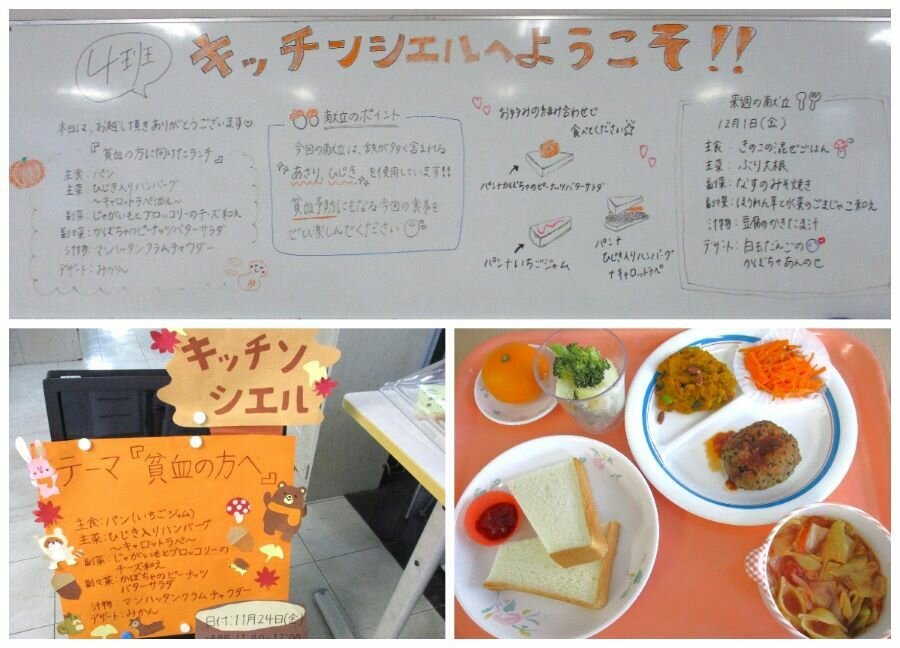 4班
キッチンシエルへようこそ!!
本日は、お越し頂きありがとうございます♡
『貧血の方に向けたランチ』
主食:パン
主菜:ひじき入りハンバーグ
～キャロットラペ添え～
副菜:じゃがいもとブロッコリーのチーズ和え
副々菜:かぼちゃのピーナッツバターサラダ
汁物:マンハッタンクラムチャウダー
デザート:みかん
献立のポイント
今回の献立は、鉄が多く含まれる
あさり、ひじき を使用しています!!
貧血予防にもなる今回の食事を
ぜひ楽しんでください
お好みの組み合わせで
食べてください☆
パン+かぼちゃのピーナッツバターサラダ
パン+いちごジャム
パン+
ひじき入りハンバーグ
+キャロットラペ
来週の献立
12月1日(金)
主食:きのこの混ぜごはん
主菜:ぶり大根
副菜:なすのみそ焼き
副々菜:ほうれん草と水菜のごまじゃこ和え
汁物:豆腐のかきたま汁
デザート:白玉だんごの
かぼちゃあんのせ
キッチン
シエル
テーマ『貧血の方へ』
主食:パン(いちごジャム)
主菜:ひじき入りハンバーグ
～キャロットラペ～
副菜:じゃがいもとブロッコリーの
チーズ和え
副々菜:かぼちゃのピーナッツ
バターサラダ
汁物:マンハッタンクラムチャウダー
デザート:みかん
日付:11月24日(金)